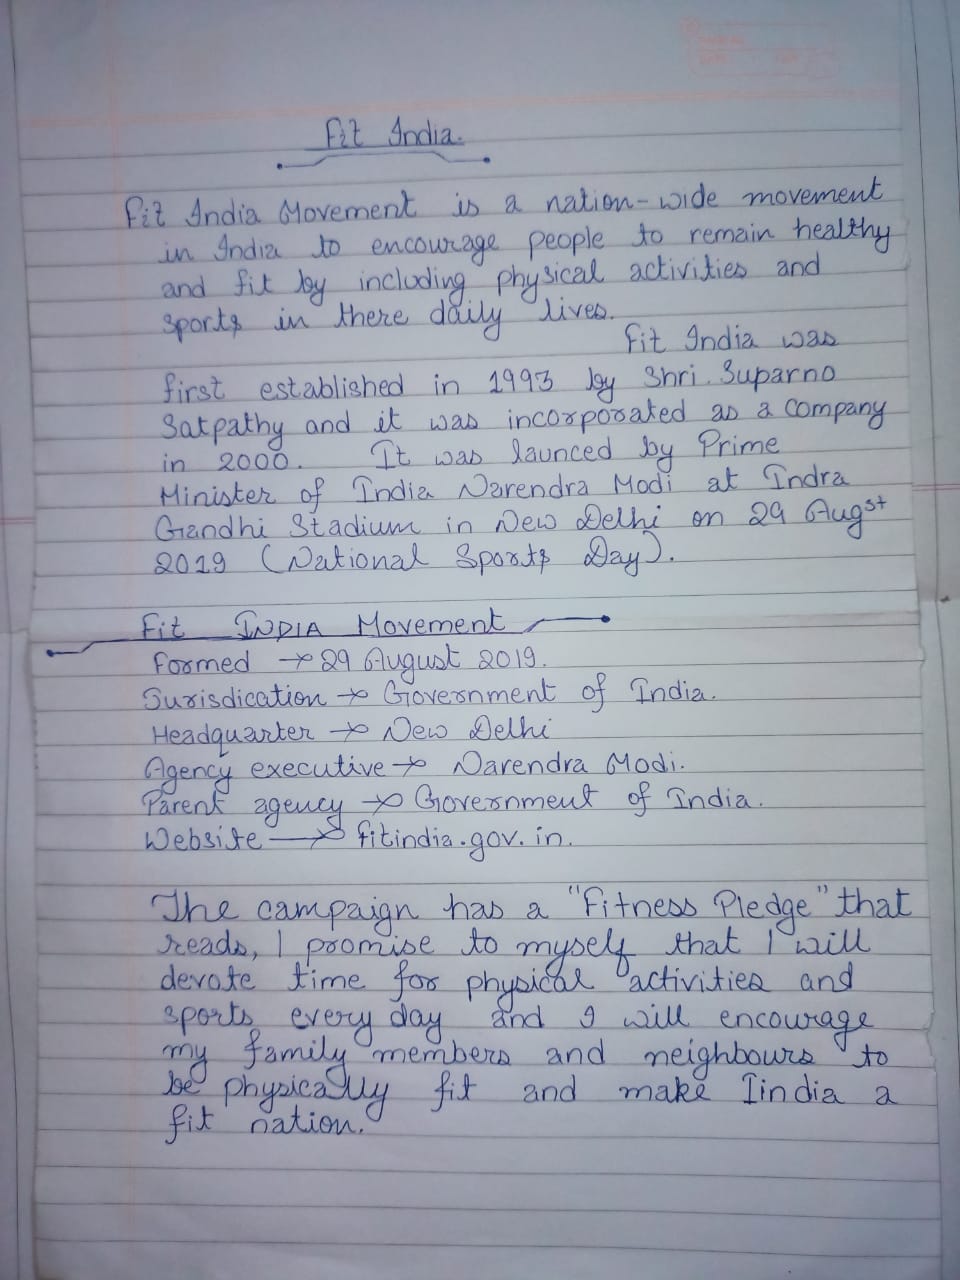 Fit India.
Fit India Movement is a nation-wide movement
in India to encourage people to remain healthy
and fit by including physical activities and
sports in there daily lives.
Fit India was
first established in 1993 by Shri. Suparno
Satpathy and it was incorporated as a company
in 2000. It was launced by Prime
Minister of India Narendra Modi at Indra
Gandhi Stadium in New Delhi on 29 Augst
2019 (National Sports Day).
Fit INDIA Movement
Formed → 29 August 2019.
Jurisdication → Government of India.
Headquarter → New Delhi
Agency executive → Narendra Modi.
Parent agency → Government of India.
Website → fitindia.gov.in.
The campaign has a "Fitness Pledge" that
reads, I promise to myself that I will
devote time for physical activities and
sports every day and I will encourage
my family members and neighbours to
be physically fit and make Iindia a
fit nation.